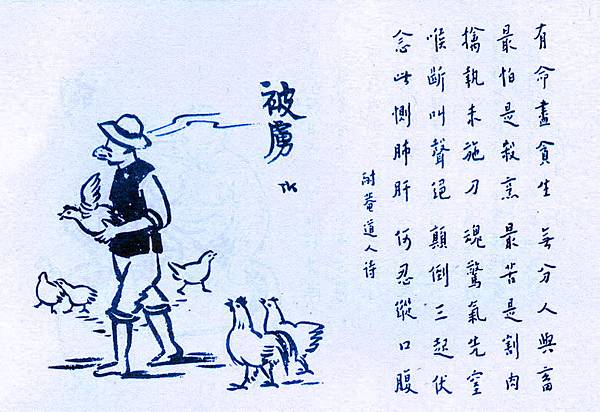 有命盡貪生 无分人與畜
最怕是殺烹 最苦是割肉
擒執未施刀 魂驚氣先窒
喉斷叫聲絕 顛倒三起伏
念此惻肺肝 何忍縱口腹
耐菴道人詩
被虜
TK